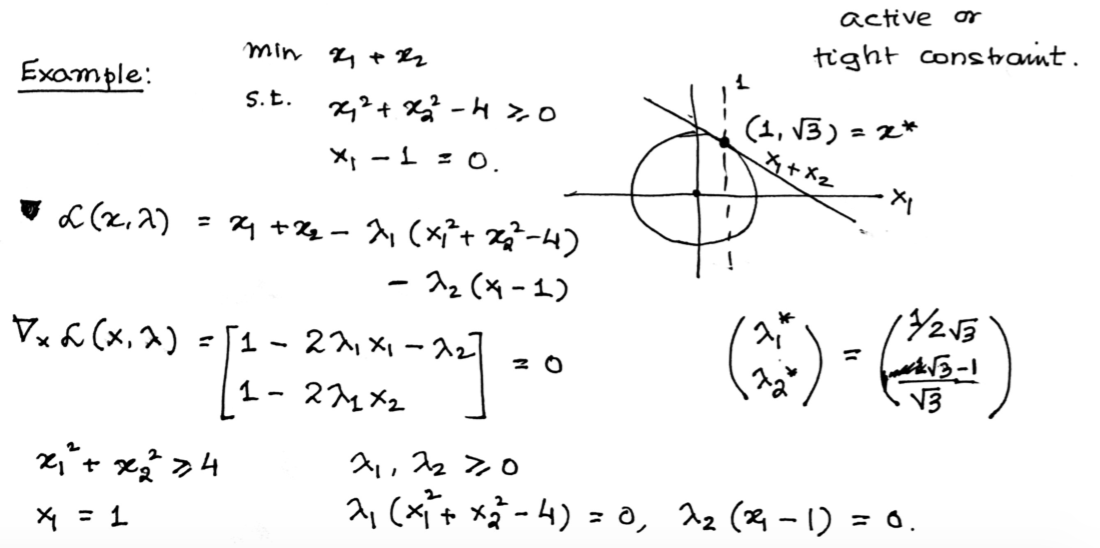 active or
tight constraint.
Example:
min x₁ + x₂
s.t. x₁² + x₂² - 4 ≥ 0
x₁ - 1 = 0.
1
(1, √3) = x*
x₁ + x₂
x₁
ℒ(x, λ) = x₁ + x₂ - λ₁ (x₁² + x₂² - 4)
- λ₂ (x₁ - 1)
∇ₓ ℒ(x, λ) = [1 - 2λ₁x₁ - λ₂
1 - 2λ₁x₂] = 0
(λ₁*
λ₂*) = (1/2√3
√3-1/√3)
x₁² + x₂² ≥ 4
x₁ = 1
λ₁, λ₂ ≥ 0
λ₁ (x₁² + x₂² - 4) = 0, λ₂ (x₁ - 1) = 0.